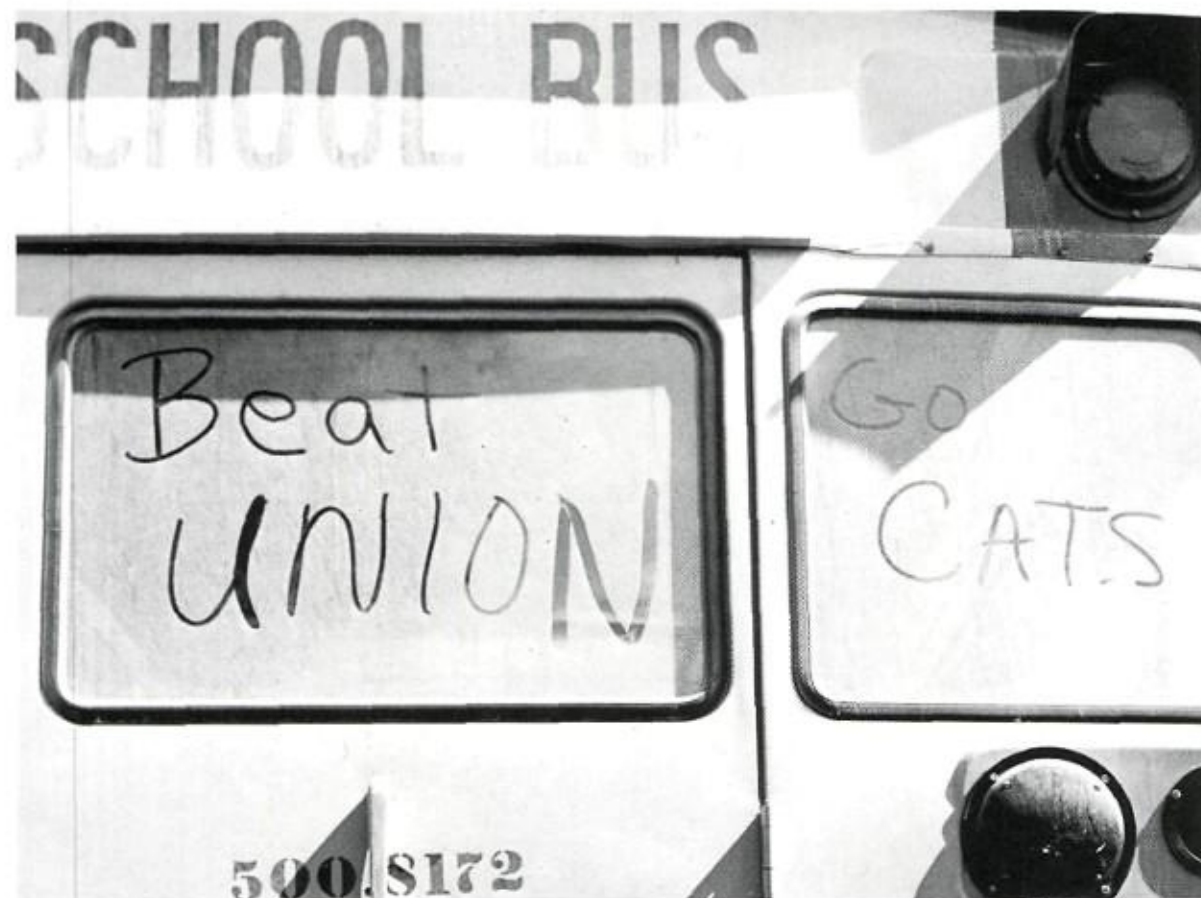 SCHOOL BUS
Beat
UNION
Go
CATS
500.S172